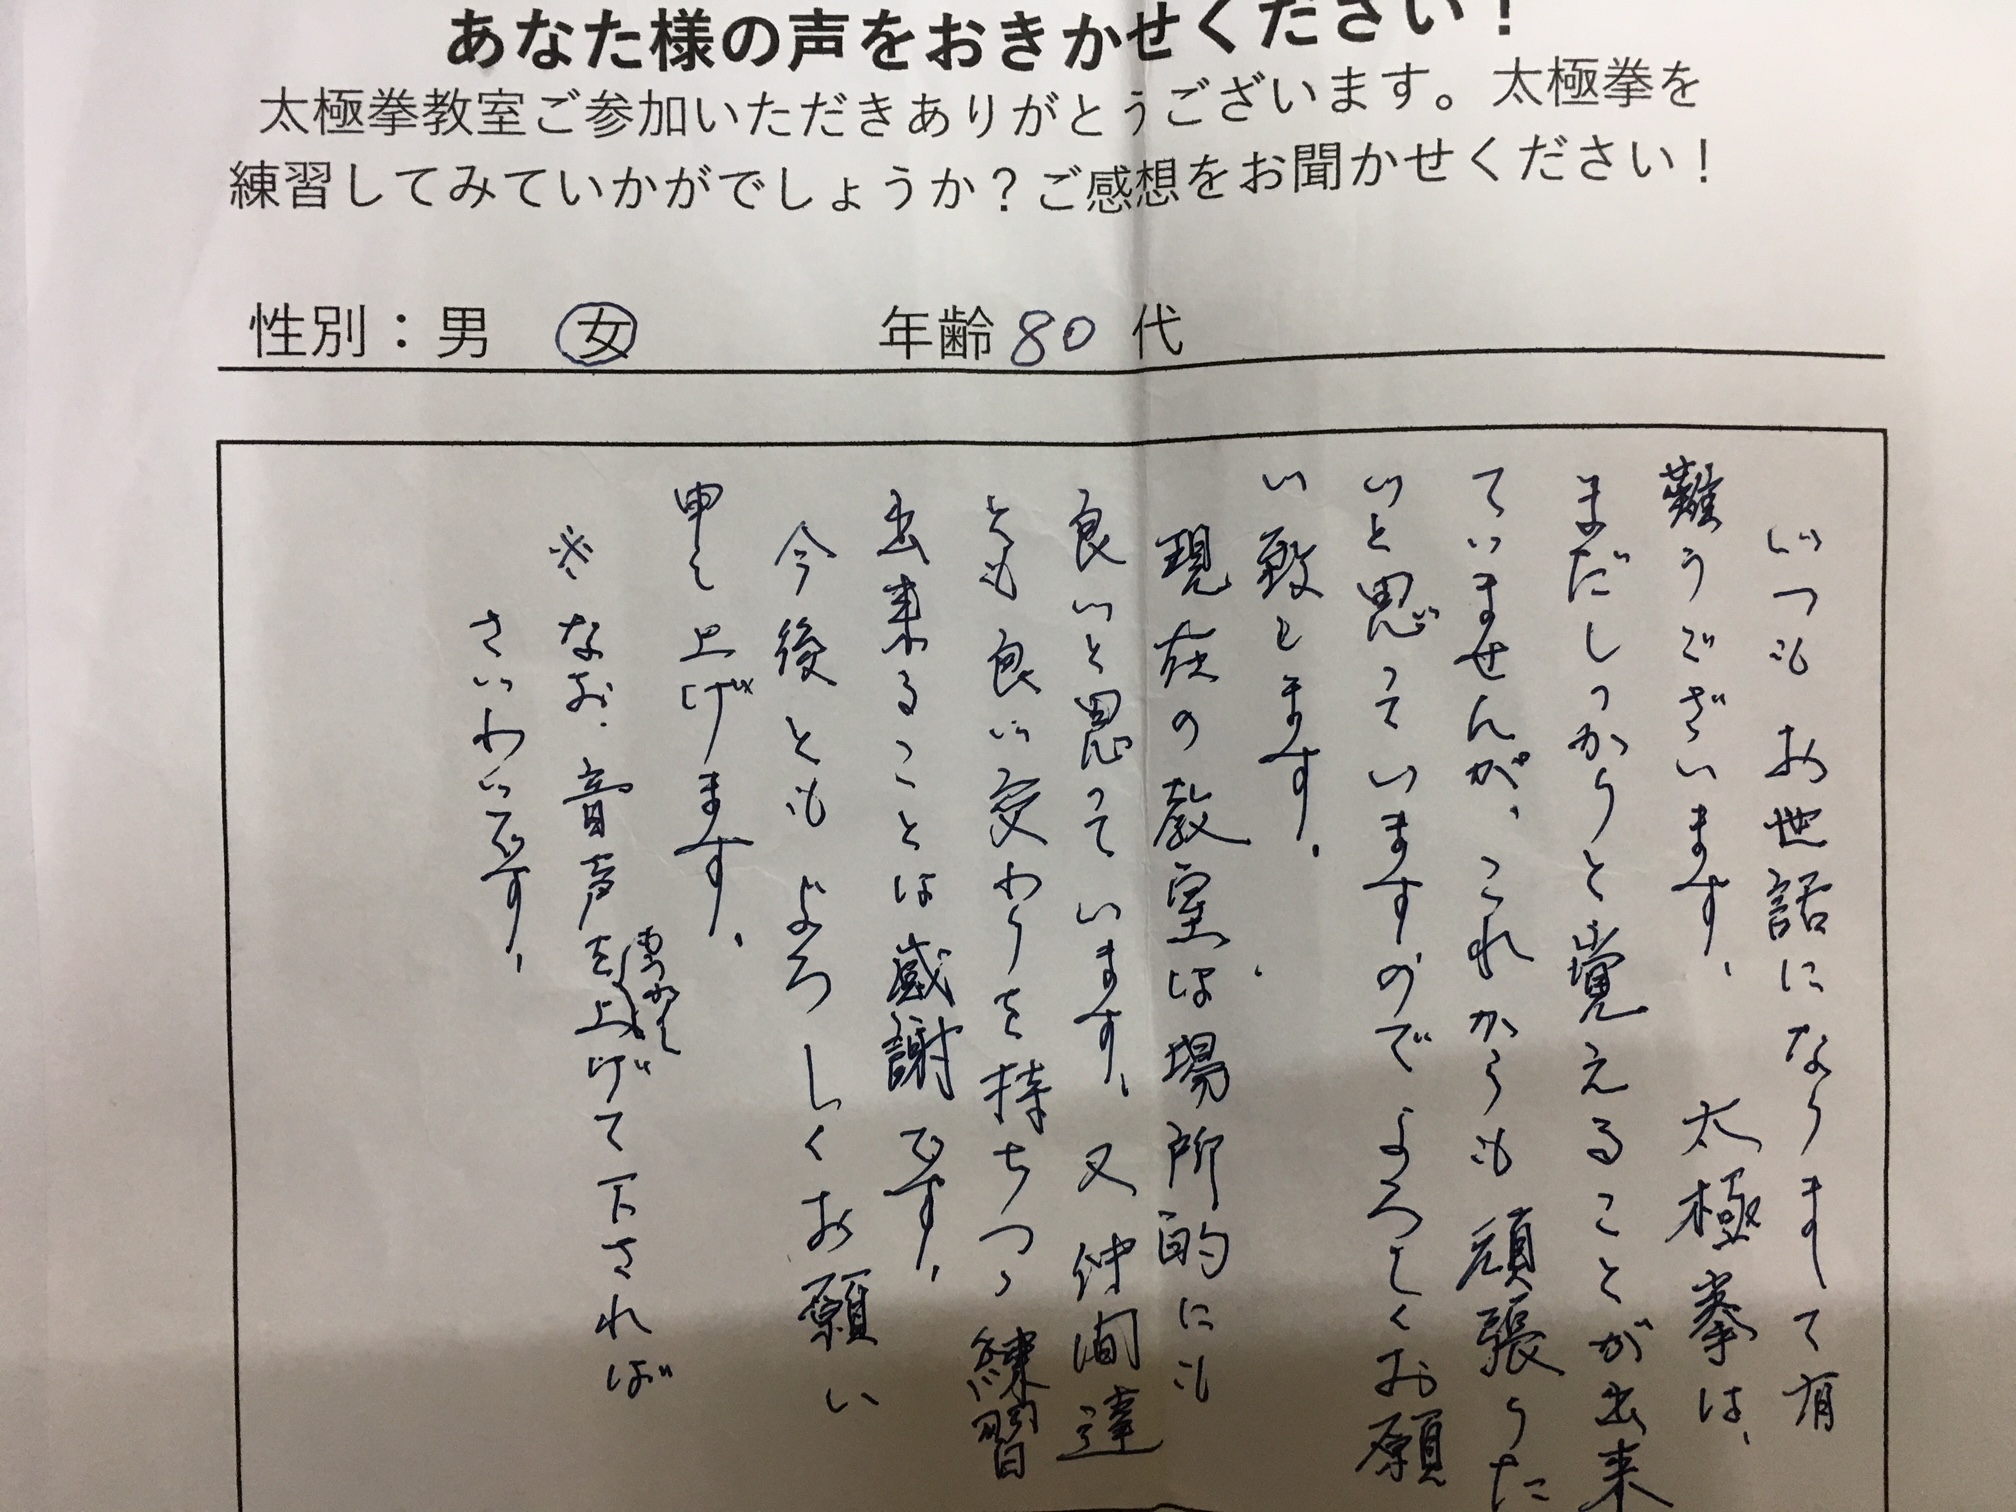 あなた様の声をおきかせください！
太極拳教室ご参加いただきありがとうございます。太極拳を
練習してみていかがでしょうか？ご感想をお聞かせください！
性別：男 女 年齢 80 代
いつもお世話になりまして有
難うございます。太極拳は、
まだしっかりと覚えることが出来
ていませんが、これからも頑張りた
いと思っていますのでよろしくお願
い致します。
現在の教室は場所的にも
良いと思っています。又仲間達
とも良い交わりを持ちつつ練習
出来ることは感謝です。
今後ともよろしくお願い
申し上げます。
※なお、音声を上げて下されば
さいわいです。